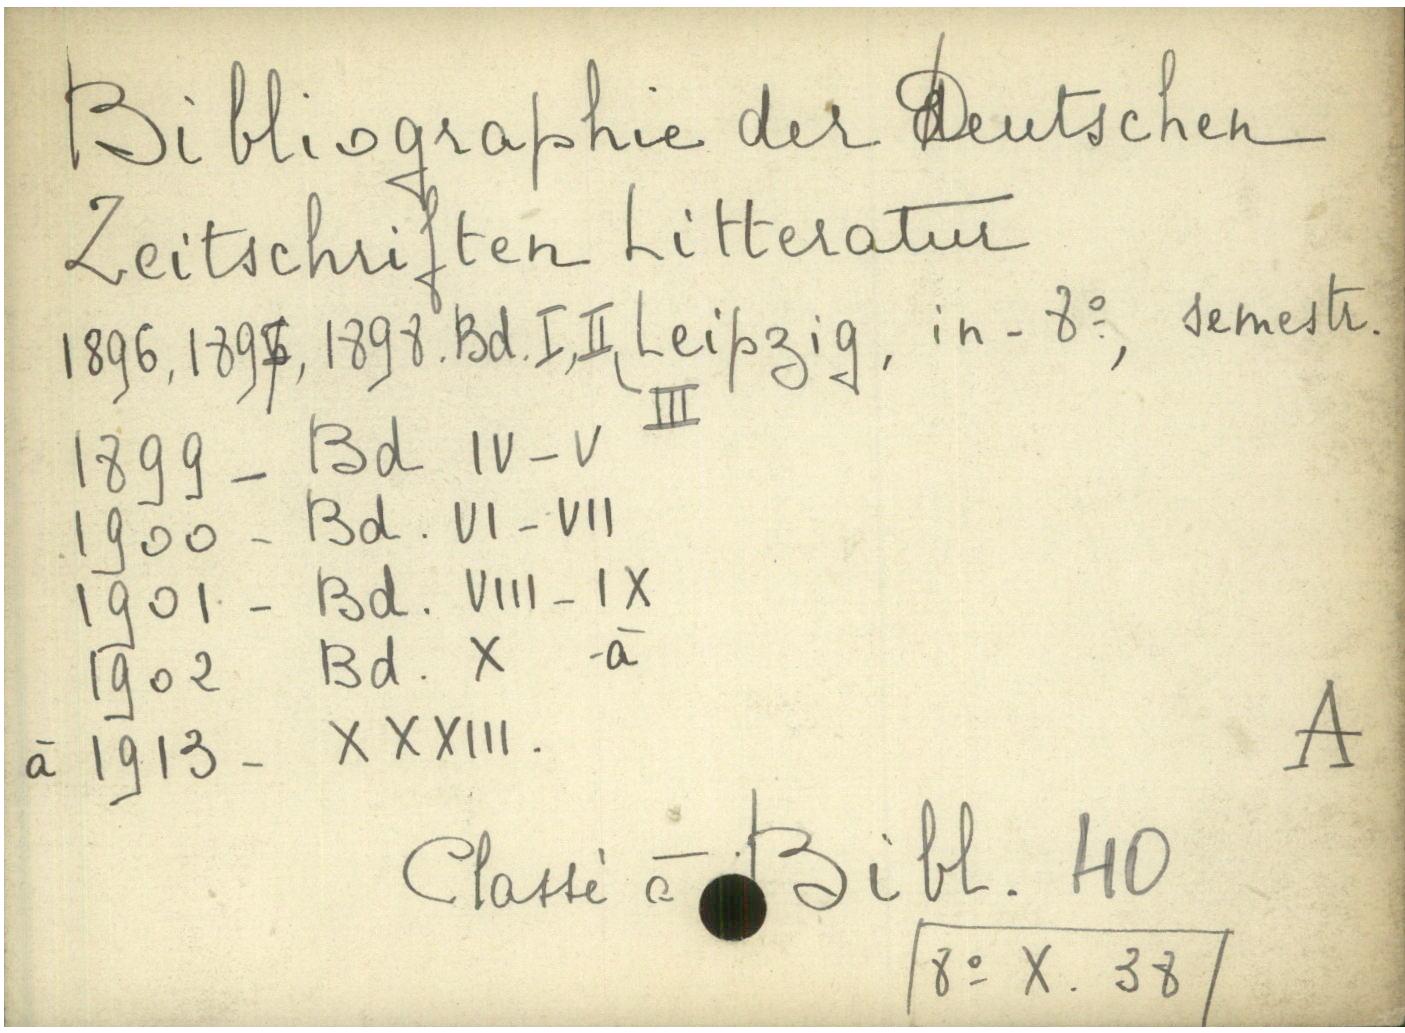 Bibliographie der Deutschen
Zeitschriften Litteratur
1896, 1897, 1898. Bd. I, II, III Leipzig, in-8º, semestr.
1899 - Bd IV - V
1900 - Bd. VI - VII
1901 - Bd. VIII - IX
1902 Bd. X - à
à 1913 - XXXIII.
A
Classé à Bibl. 40
8º X. 38